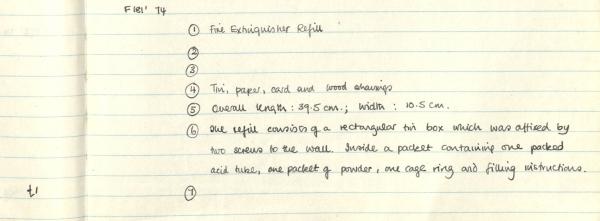 F181' 74
① Fire Extinguisher Refill
②
③
④ Tin, paper, card and wood shavings
⑤ Overall length : 39.5 cm. ; Width : 10.5 cm.
⑥ One refill consists of a rectangular tin box which was affixed by
two screws to the wall. Inside a packet containing one packed
acid tube, one packet of powder, one cage ring and filling instructions.
⑦